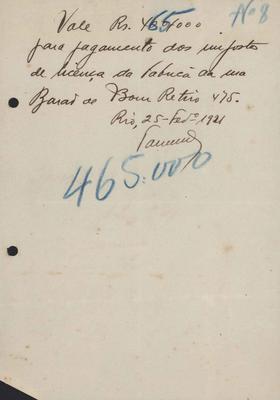 Nº 8
Vale Rs. 465$000
para pagamento dos impostos
de licença da fabrica da rua
Barão do Bom Retiro 475.
Rio, 25-Fevº 1921
465:000